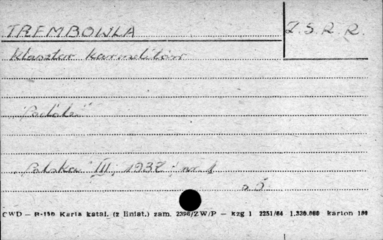 TREMBOWLA
Z.S.2 2.
Klasztor karmelitów
"Polska" III, 1937, nr 1
CWD – B-150 Karta katal. (z liniat.) zam. 2296/ZW/P – Kzg 1 2251/64 1.330.000 karton 180